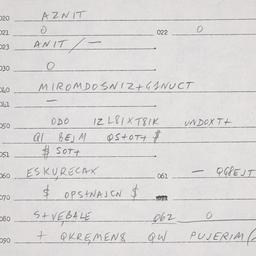 020 AZNIT
021 0 022 0
023 ANIT/—
030 0
040 MIROMDOSNIZ+GSNUCT
041 —
050 ODO IZL8IXT8IK UNDOXT+
QI BEJM QS+OT+ $
051 $ SOT+
060 ESKURECAX 061 — QGREJT
070 $ OPS+NAJCN $
080 S+VEBALE 062 0
090 + QKREMEN8 QW PUJERIM